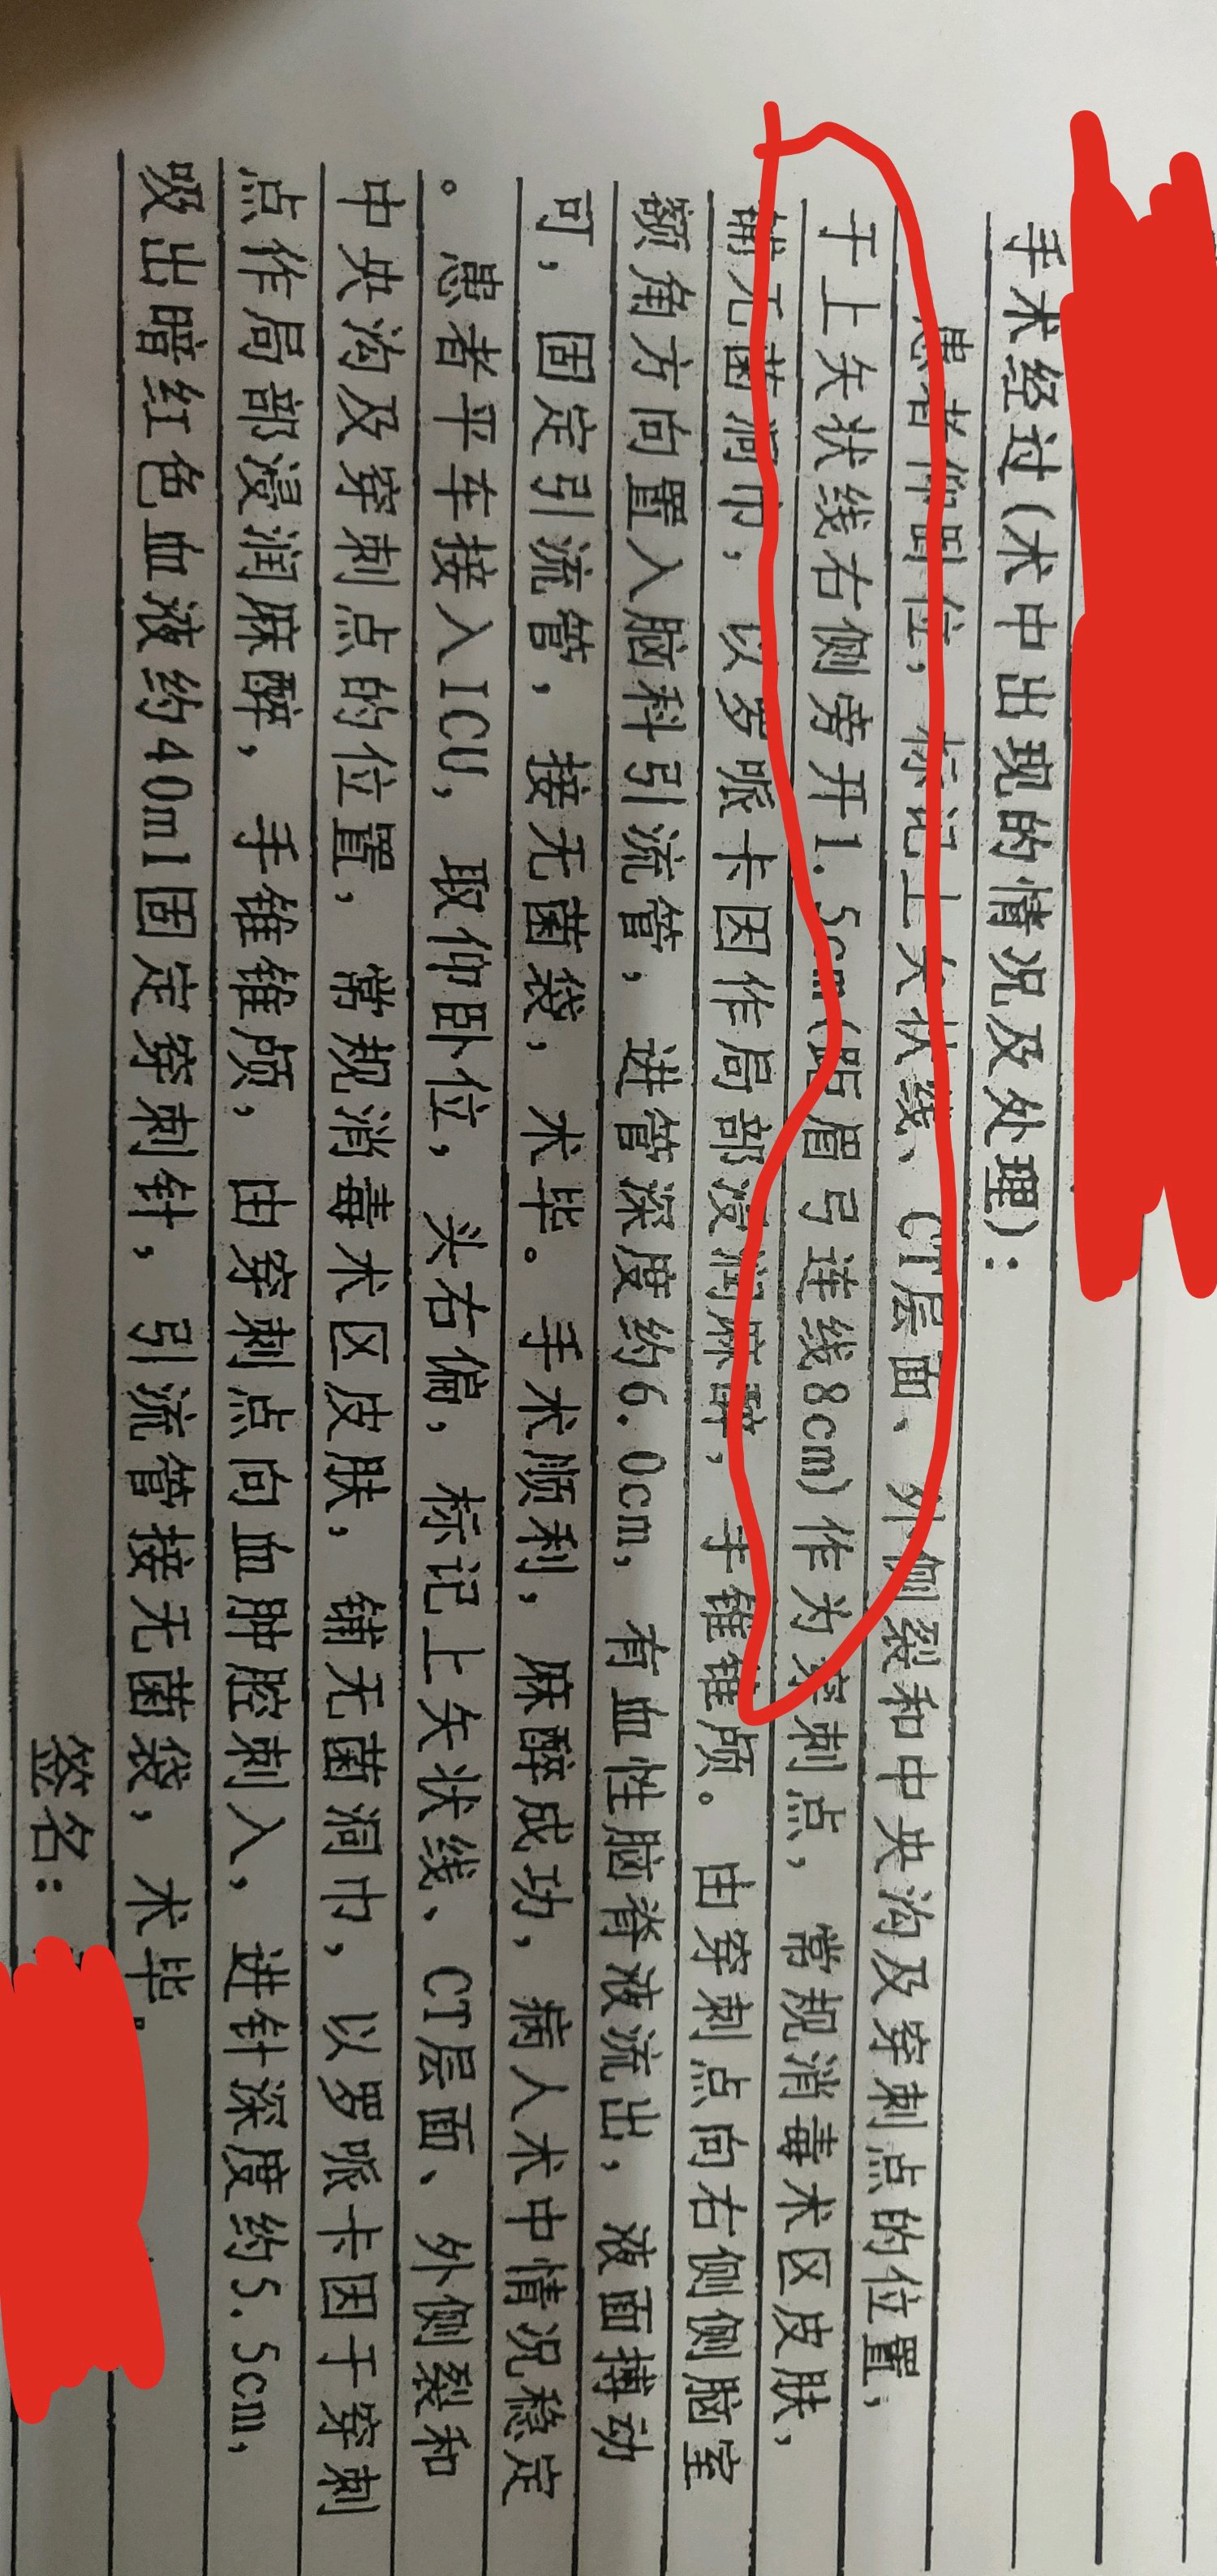 手术经过(术中出现的情况及处理):
患者仰卧位，标记上矢状线、CT层面、外侧裂和中央沟及穿刺点的位置，
于上矢状线右侧旁开1.5cm(距眉弓连线8cm)作为穿刺点，常规消毒术区皮肤，
铺无菌洞巾，以罗哌卡因作局部浸润麻醉，手锥锥颅。由穿刺点向右侧侧脑室
额角方向置入脑科引流管，进管深度约6.0cm，有血性脑脊液流出，液面搏动
可，固定引流管，接无菌袋，术毕。手术顺利，麻醉成功，病人术中情况稳定
。患者平车接入ICU，取仰卧位，头右偏，标记上矢状线、CT层面、外侧裂和
中央沟及穿刺点的位置，常规消毒术区皮肤，铺无菌洞巾，以罗哌卡因于穿刺
点作局部浸润麻醉，手锥锥颅，由穿刺点向血肿腔刺入，进针深度约5.5cm，
吸出暗红色血液约40ml固定穿刺针，引流管接无菌袋，术毕。
签名：